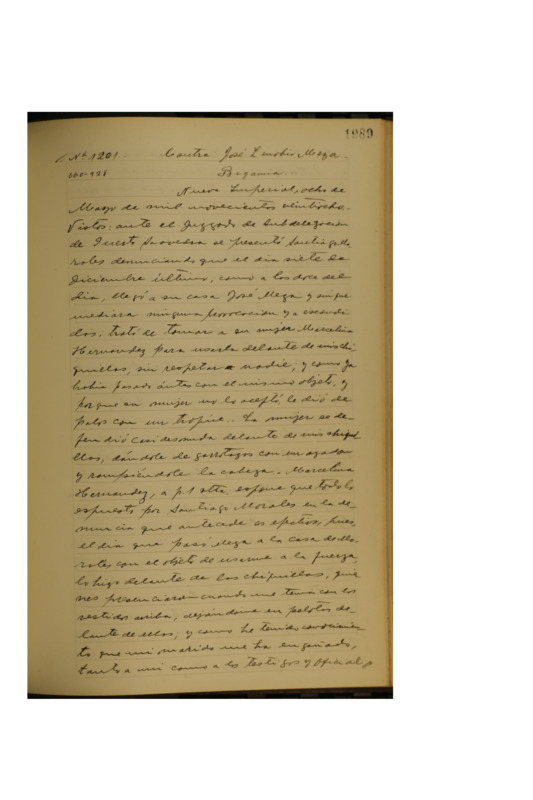 1989
Nº 1201 Contra José Meza.
Bigamia.
Nueva Imperial, ocho de
Marzo de mil novecientos veintiocho.
Vistos: ante el Juzgado de Subdelegación
de Puerto Saavedra se presentó Santiago Mo
rales denunciando que el día siete de
Diciembre último, como a las doce del
día, llegó a su casa José Meza y sin que
mediara ninguna provocación y a escondi
das, trató de tomar a su mujer Marcelina
Hernandez para usarla delante de mis chi
quillas, sin respetar a nadie; y como ya
habia pasado ántes con el mismo objeto, y
porque su mujer no lo aceptó, le dió de
palos con un tropine. La mujer se de-
fendió casi desnuda delante de mis chiqui
llas, dándole de garrotazos con un azadon
y rompiéndole la cabeza. Marcelina
Hernandez, a f. 1 vta, espone que todo lo
espuesto por Santiago Morales en la de-
nuncia que antecede es efectivo, pues,
el dia que pasó Meza a la casa de Mo-
rales con el objeto de usarme a la fuerza,
lo hizo delante de las chiquillas, quie
nes presenciaron cuando me tenia con los
vestidos arriba, dejándome en pelotas de-
lante de ellas; y como he tenido conocimien
to que mi marido me ha engañado,
tanto a mi como a los testigos y oficial